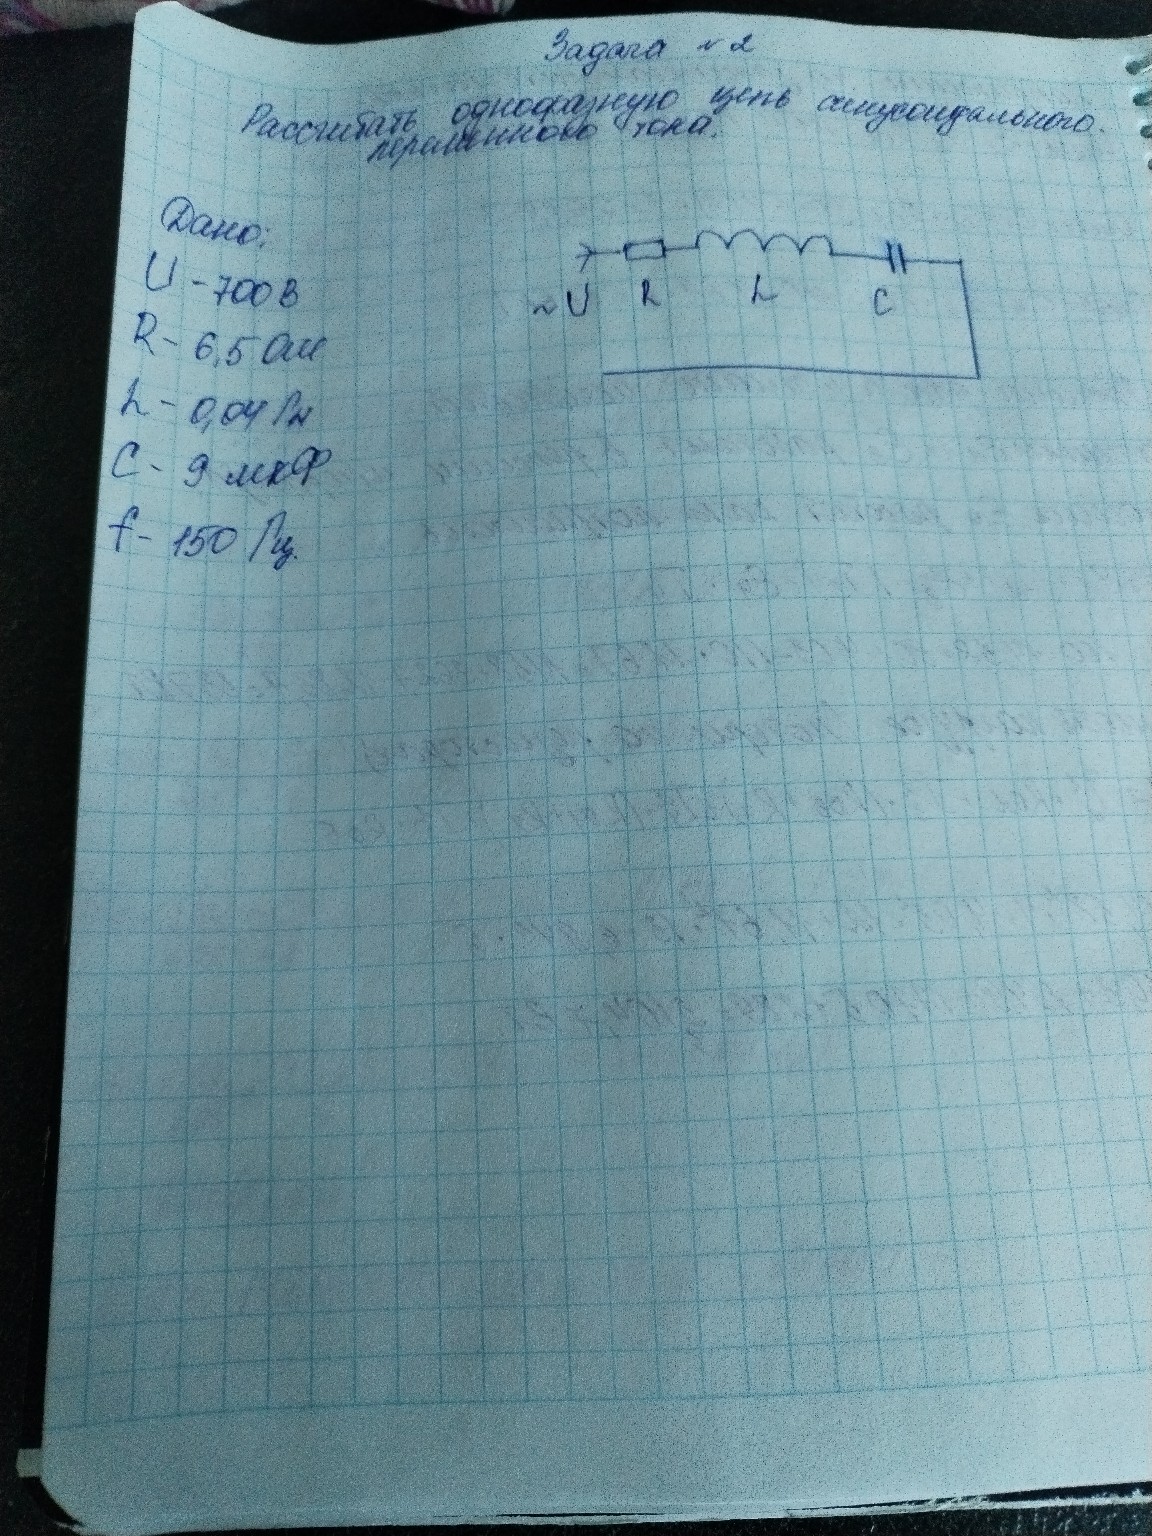 Задача № 2
Рассчитать однофазную цепь синусоидального.
переменново тока.
Дано:
U - 700 В
R - 6,5 Ом
L - 0,04 Гн
C - 9 мкФ
f - 150 Гц.
~U R L C